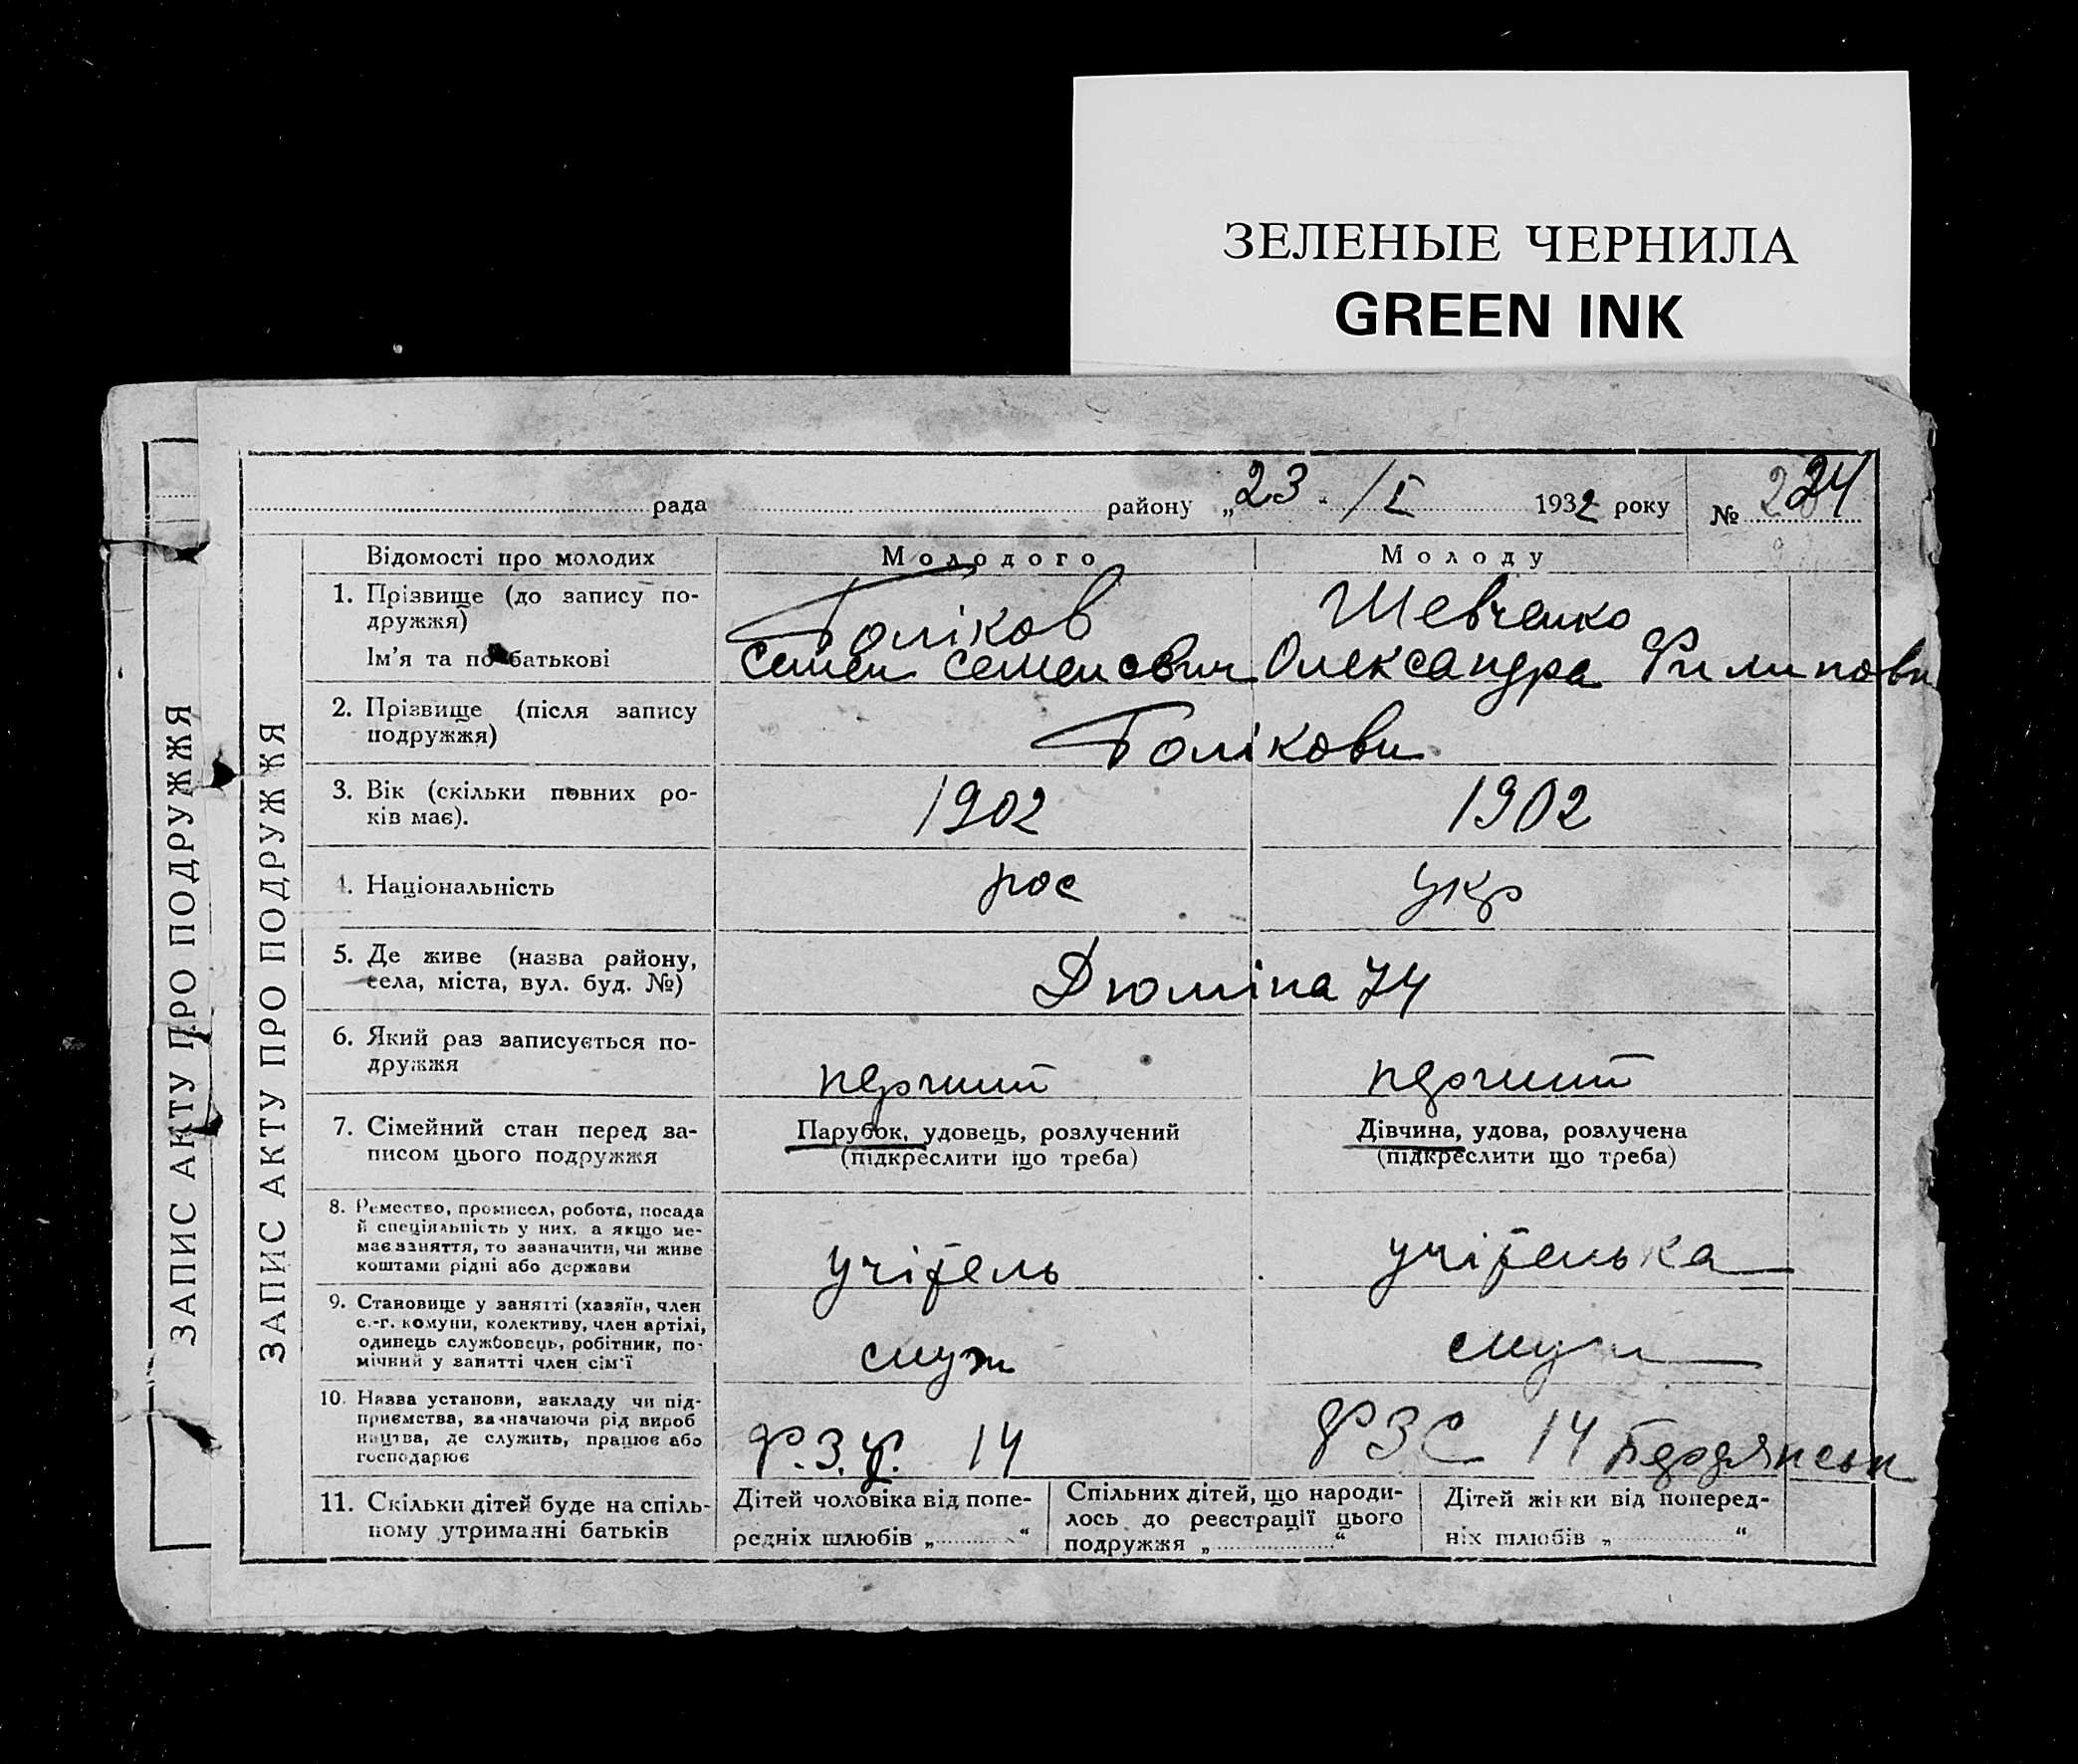 ЗЕЛЕНЫЕ ЧЕРНИЛА
GREEN INK
рада району „23“ /I 1932 року № 224
ЗАПИС АКТУ ПРО ПОДРУЖЖЯ
ЗАПИС АКТУ ПРО ПОДРУЖЖЯ
Відомості про молодих Молодого Молоду
1. Прізвище (до запису по-
дружжя)
Голіков Шевченко
Ім'я та по батькові
Семен Семенович Олександра Филипови
2. Прізвище (після запису
подружжя)
Голікови
3. Вік (скільки повних ро-
ків має).
1902 1902
4. Національність рос укр
5. Де живе (назва району,
села, міста, вул. буд. №)
Дюміна 74
6. Який раз записується по-
дружжя
перший перший
7. Сімейний стан перед за-
писом цього подружжя
Парубок, удовець, розлучений
(підкреслити що треба)
Дівчина, удова, розлучена
(підкреслити що треба)
8. Ремество, промисел, робота, посада
й спеціяльність у них, а якщо не-
має заняття, то зазначити, чи живе
коштами рідні або держави
учітель учітелька
9. Становище у занятті (хазяїн, член
с.-г. комуни, колективу, член артілі,
одинець службовець, робітник, по-
мічний у занятті член сім'ї
служ служ
10. Назва установи, закладу чи під-
приємства, зазначаючи рід вироб
ництва, де служить, працює або
господарює
Ф.З.У. 14 ФЗС 14 Бердянськ
11. Скільки дітей буде на спіль-
ному утриманні батьків
Дітей чоловіка від попе-
редніх шлюбів „ “
Спільних дітей, що народи-
лось до реєстрації цього
подружжя „ “
Дітей жінки від поперед-
ніх шлюбів „ “